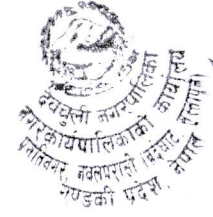 देवचुली नगरपालिका
नगर कार्यपालिकाको कार्यालय
प्रगतिनगर, नवलपरासी (बर्दघाट
गण्डकी प्रदेश, नेपाल